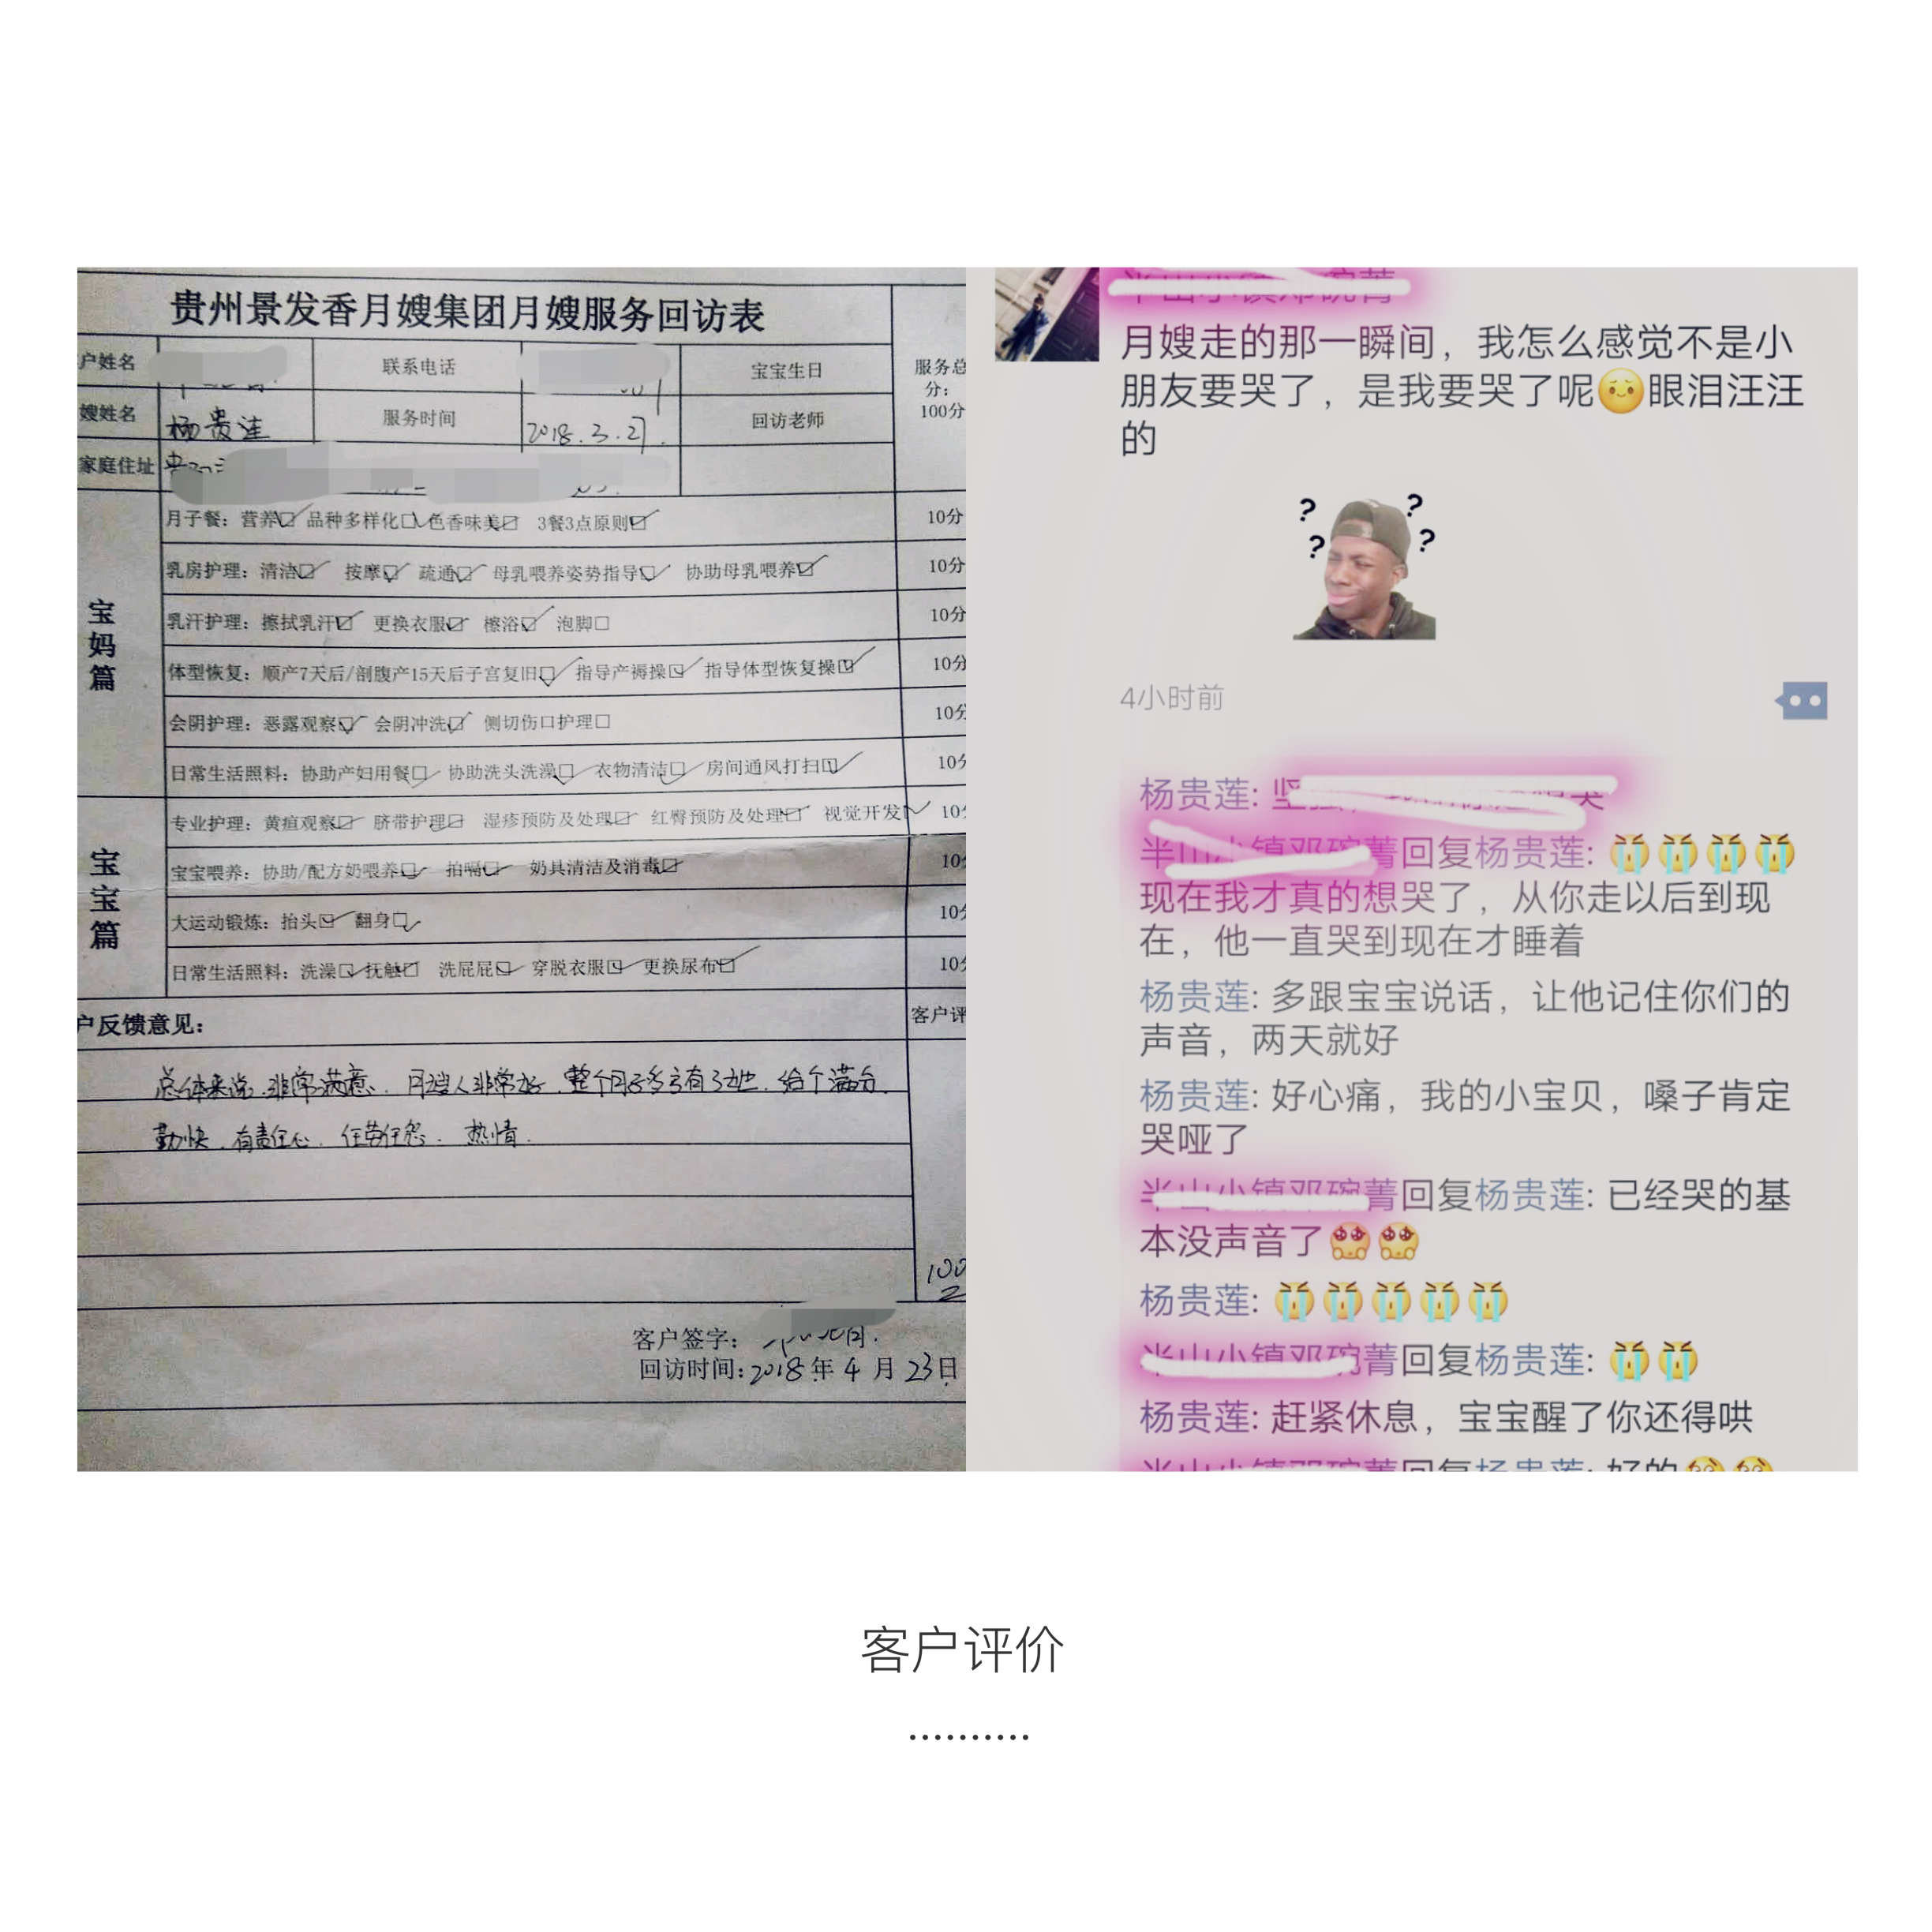 贵州景发香月嫂集团月嫂服务回访表
户姓名 联系电话 宝宝生日
服务总分：100分
嫂姓名 杨贵莲 服务时间 2018.3.27. 回访老师
家庭住址
宝妈篇
月子餐：营养☑ 品种多样化☑ 色香味美☑ 3餐3点原则☑ 10分
乳房护理：清洁☑ 按摩☑ 疏通☑ 母乳喂养姿势指导☑ 协助母乳喂养☑ 10分
乳汗护理：擦拭乳汗☑ 更换衣服☑ 檫浴☑ 泡脚□ 10分
体型恢复：顺产7天后/剖腹产15天后子宫复旧☑ 指导产褥操☑ 指导体型恢复操☑ 10分
会阴护理：恶露观察☑ 会阴冲洗☑ 侧切伤口护理□ 10分
日常生活照料：协助产妇用餐☑ 协助洗头洗澡☑ 衣物清洁☑ 房间通风打扫☑ 10分
宝宝篇
专业护理：黄疸观察☑ 脐带护理☑ 湿疹预防及处理☑ 红臀预防及处理☑ 视觉开发☑ 10分
宝宝喂养：协助/配方奶喂养☑ 拍嗝☑ 奶具清洁及消毒☑ 10分
大运动锻炼：抬头☑ 翻身☑ 10分
日常生活照料：洗澡☑ 抚触☑ 洗屁屁☑ 穿脱衣服☑ 更换尿布☑ 10分
户反馈意见： 客户评
总体来说.非常满意. 月嫂人非常好.整个月子多亏有了她.给个满分.
勤快.有责任心.任劳任怨. 热情.
100
客户签字：
回访时间：2018年4月23日
月嫂走的那一瞬间，我怎么感觉不是小
朋友要哭了，是我要哭了呢🥺眼泪汪汪
的
? ? ? ?
4小时前
杨贵莲:
菁回复杨贵莲: 😭😭😭😭
现在我才真的想哭了，从你走以后到现
在，他一直哭到现在才睡着
杨贵莲: 多跟宝宝说话，让他记住你们的
声音，两天就好
杨贵莲: 好心痛，我的小宝贝，嗓子肯定
哭哑了
菁回复杨贵莲: 已经哭的基
本没声音了🥺🥺
杨贵莲: 😭😭😭😭😭
菁回复杨贵莲: 😭😭
杨贵莲: 赶紧休息，宝宝醒了你还得哄
回复杨贵莲: 好的
客户评价
..........